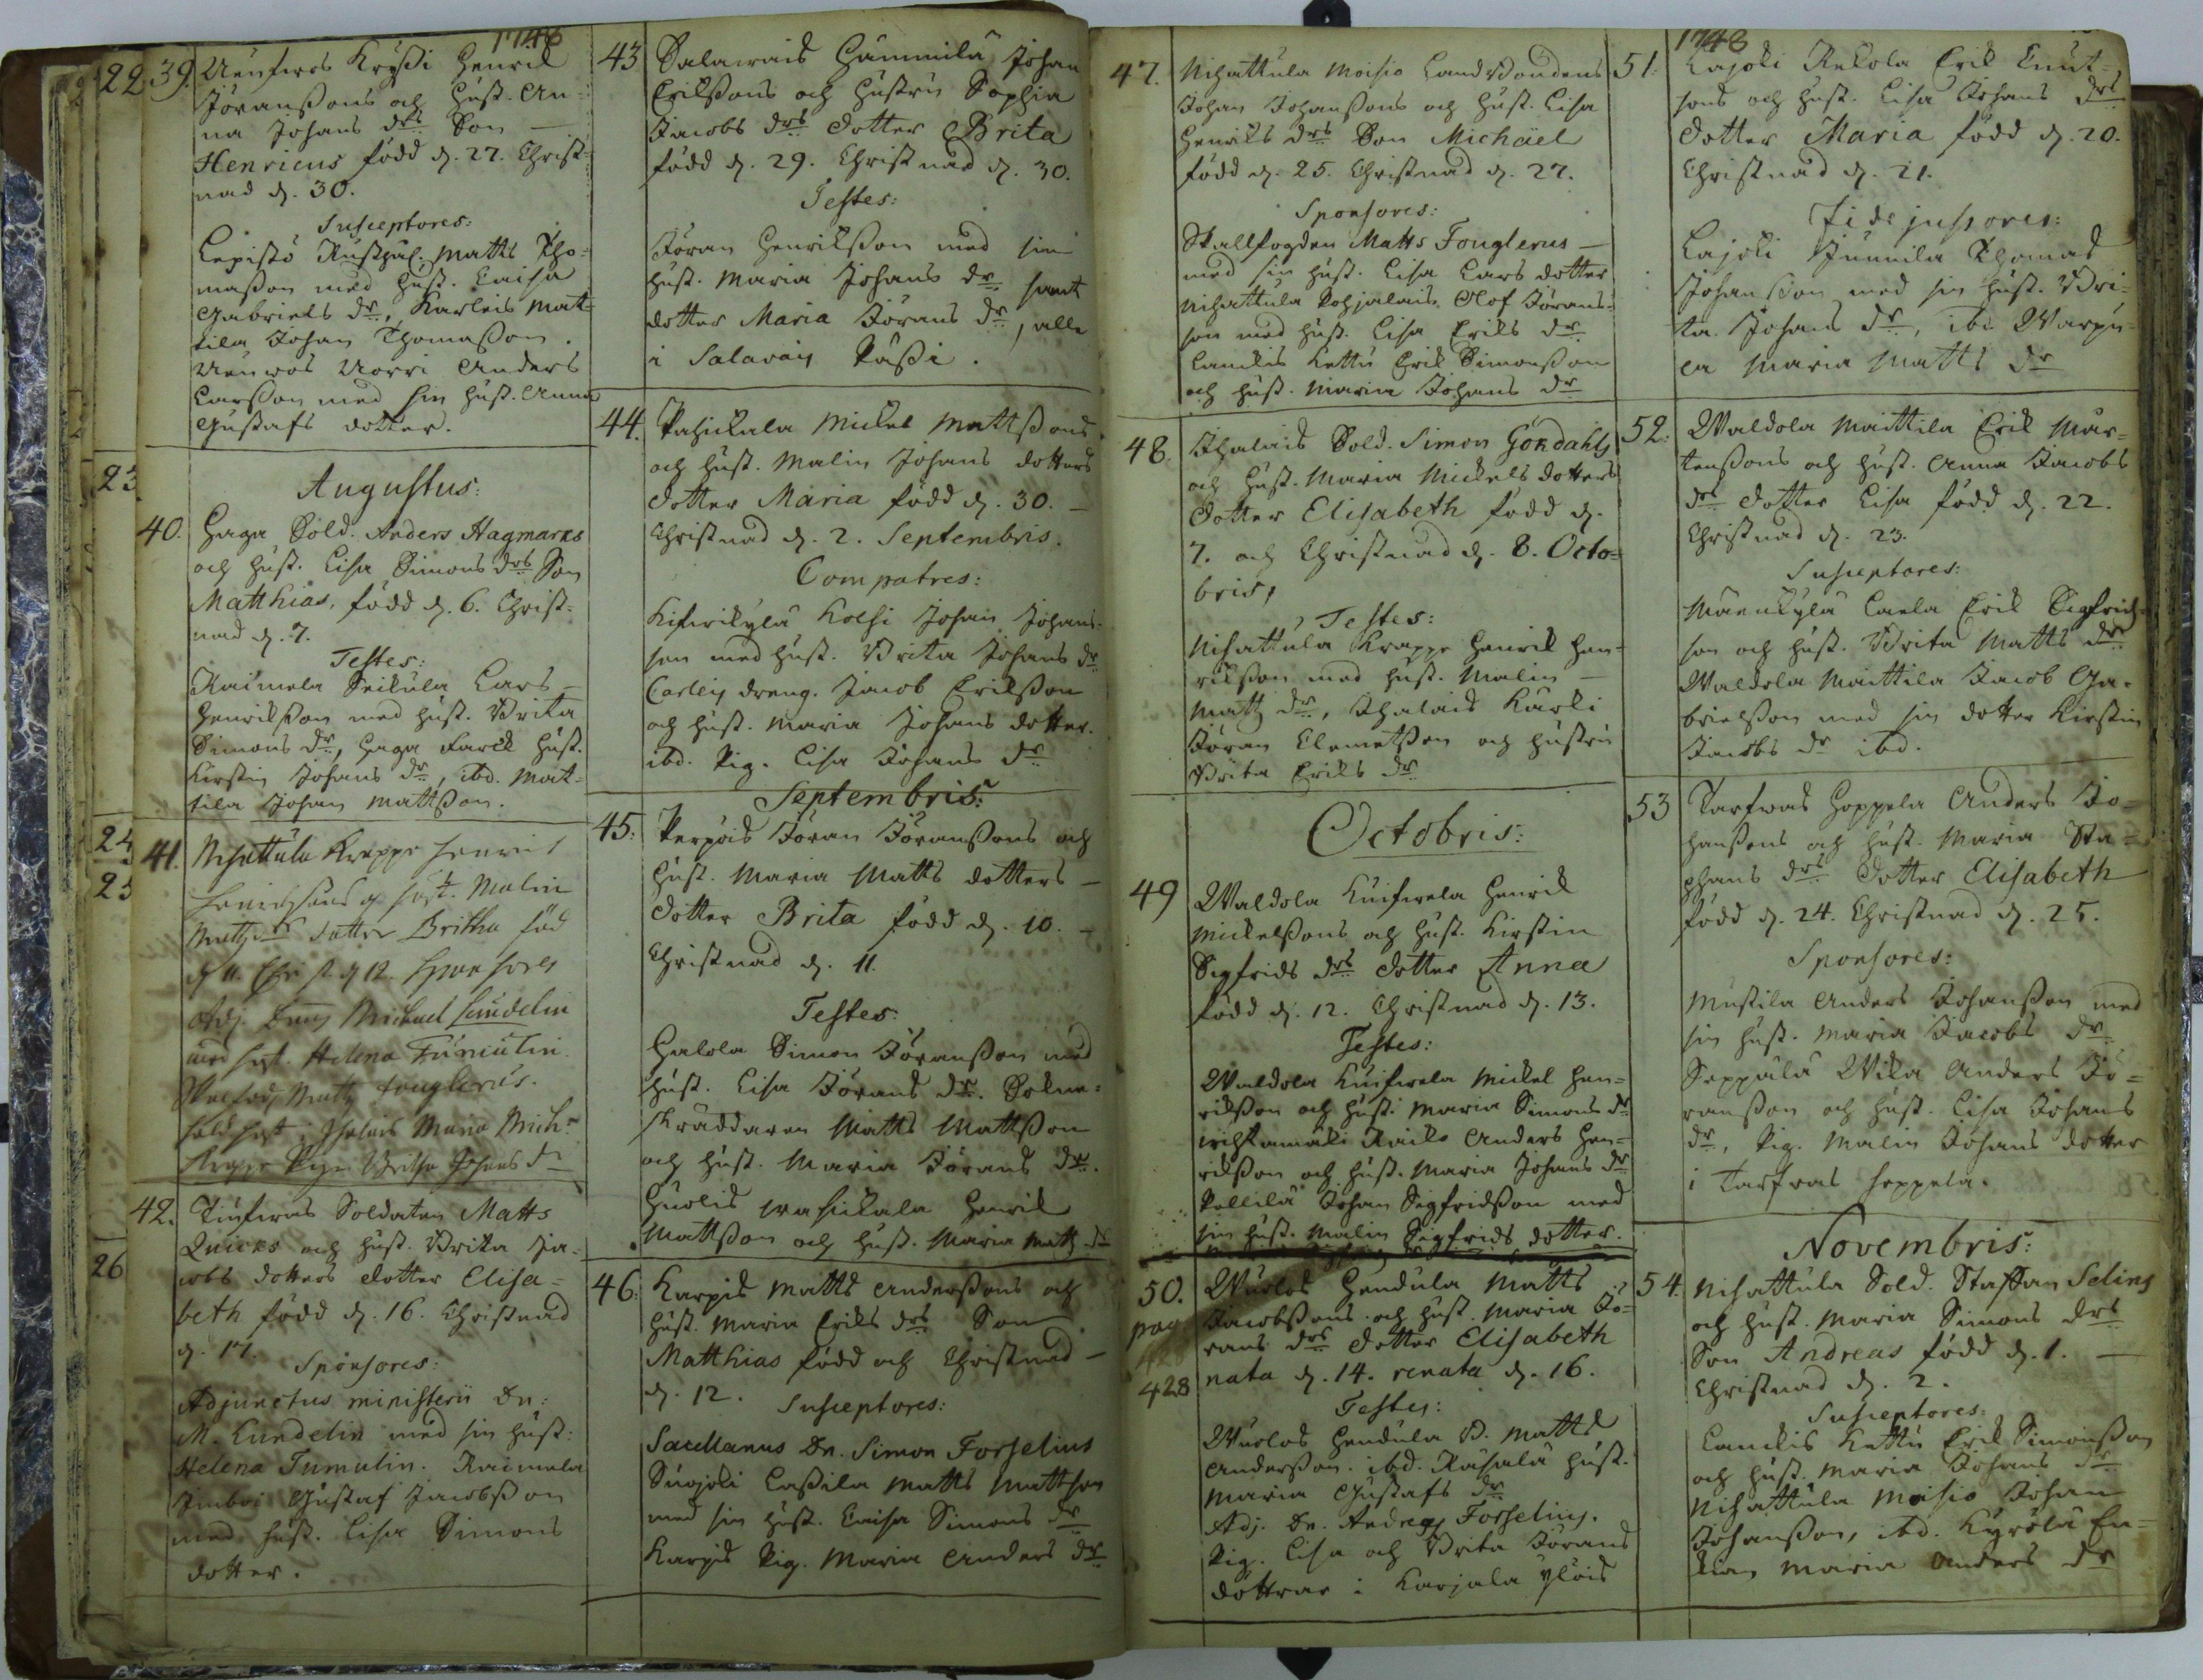 1748
22
23
24
25
26
39. Uenfwos Krÿssi Henrik
Jöranssons och hust. An-
na Johans drs Son —
Henricus född d. 27. Christ-
nad d. 30.
Susceptores:
Lepistö Rusthål. Matts Tho-
masson med hust. Caisa
Gabriels dr, Karleis Mat-
tila Johan Thomasson.
Anders
Larsson med sin hust. Anna
Gustafs dotter.
Augustus:
40. Haga Sold. Anders Hagmarks
och hust. Lisa Simons drs Son
Matthias, född d. 6. Christ-
nad d. 7.
Testes:
Raimela Seikula Lars —
Henriksson med hust. Brita
Simons dr, Haga Farck hust.
Kirstin Johans dr, ibd. Mat-
tila Johan Mattsson.
41. Nihattula Krappe Henric
hust. Malin
Matz drs dotter Britha föd
d 11. Chr st d 12. Sponsores
Adj. Michael Lundelin
med hust. Helena Tumulin.
Matz Fonglerus.
Maria Mich:
Pig. Britha Johans dr
42. Tuifwas Soldaten Matts
Quicks och hust. Brita Ja-
cobs dotters dotter Elisa-
beth född d. 16. Christnad
d. 17.
Sponsores:
Adjunctus ministerii Dn:
M. Lundelin med sin hust:
Helena Tumulin. Raimela
Gustaf Jacobsson
med hust. Lisa Simons
dotter.
43 Salawais Hannnila Johan
Erikssons och hustru Sophia
Jacobs drs dotter Brita
född d. 29. Christnad d. 30.
Testes:
Jöran Henriksson med sin
hust. Maria Johans dr samt
dotter Maria Jörans dr, alle
i Salavais Pässi.
44. Pahikala Mickel Mattssons
och hust. Malin Johans dotters
dotter Maria född d. 30. —
Christnad d. 2. Septembris.
Compatres:
Kifwikylä Kolsi Johan Johans-
son med hust. Brita Johans dr
Carleis dreng. Jacob Eriksson
och hust. Maria Johans dotter.
ibd. Pig. Lisa Johans dr
Septembris:
45: Perpois Jöran Jöranssons och
hust. Maria Matts dotters —
dotter Brita född d. 10. —
Christnad d. 11.
Testes:
Halola Simon Jöransson med
hust. Lisa Jörans dr. Sokne-
skräddaren Matts Mattsson
och hust. Maria Jörans dr.
Huolis wahikala Henrik
Mattsson och hust. Maria Matts dr
46: Karpis Matts Anderssons och
hust. Maria Eriks drs Son
Matthias född och Christnad —
d. 12.
Susceptores:
Sacellanus Dn. Simon Forselius
Suojoki Cassila Matts Mattsson
med sin hust. Caisa Simons dr
Karpis Pig. Maria Anders dr
47. Nihattula Moisio Landbondens
Johan Johanssons och hust. Lisa
Henriks drs Son Michaël
född d. 25. Christnad d. 27.
Sponsores:
Skallfogden Matts Fonglerus —
med sin hust. Lisa Lars dotter
Nihattula Pohjalais Olof Jörans-
son med hust. Lisa Eriks dr.
Lanckis Kettu Erik Simonsson
och hust. Maria Johans dr
48. Ihalais Sold. Simon Gördahls
och hust. Maria Mickels dotters
dotter Elisabeth född d.
7. och Christnad d. 8. Octo-
bris,
Testes:
Nihattula Krappe Henrik Hen-
riksson med hust. Malin —
Matz dr, Ihalais Kärki
Jöran Clemetsson och hustru
Brita Eriks dr
Octobris:
49 Waldola Kuifwela Henrik
Mickelssons och hust. Kirstin
Sigfrids drs dotter Anna
född d. 12. Christnad d. 13.
Testes:
Waldola Kuifwela Mickel Hen-
riksson och hust. Maria Simons dr
wihtamäki Raiko Anders Hen-
riksson och hust. Maria Johans dr
Pellilä Johan Sigfridsson med
sin hust. Malin Sigfrids dotter.
50. Wuolos Hendula Matts
Jacobssons och hust. Maria Jö-
rans drs dotter Elisabeth
nata d. 14. renata d. 16.
pag.
428
428
Testes:
Wuolos Hendula B. Matts
Andersson. ibd. Rahala hust.
Maria Gustafs dr
Adj. Dn. Andreas Forselius.
Pig. Lisa och Brita Jörans
döttrar i Karjala Ylöis
1748
51. Lajoki Rekola Erik Knut-
sons och hust. Lisa Johans drs
dotter Maria född d. 20.
Christnad d. 21.
Fidejussores:
Lajoki Junnila Thomas
Johansson med sin hust. Bri-
ta Johans dr, ibd.
Maria Matts dr
52: Waldola Maittila Erik Mår-
tenssons och hust. Anna Jacobs
drs dotter Lisa född d. 22.
Christnad d. 23.
Susceptores:
Mäenkylä Caela Erik Sigfrids-
son och hust. Brita Matts dr
Waldola Maittila Jacob Ga-
brielsson med sin dotter Kirstin
Jacobs dr ibd.
53 Tarfwas Hoppela Anders Jo-
hanssons och hust. Maria Sta-
phans drs dotter Elisabeth
född d. 24. Christnad d. 25.
Sponsores:
Mustila Anders Johansson med
sin hust. Maria Jacobs dr.
Seppälä Wika Anders Jö-
ransson och hust. Lisa Johans
dr, Pig. Malin Johans dotter
i Tarfwas Hoppela.
Novembris:
54. Nihattula Sold. Staffan Selins
och hust. Maria Simons drs
Son Andreas född d. 1. —
Christnad d. 2.
Susceptores:
Lanckis Kettu Erik Simonsson
och hust. Maria Johans dr
Nihattula Moisio Johan
Johansson, ibd. Kyrölä En-
kian Maria Anders dr